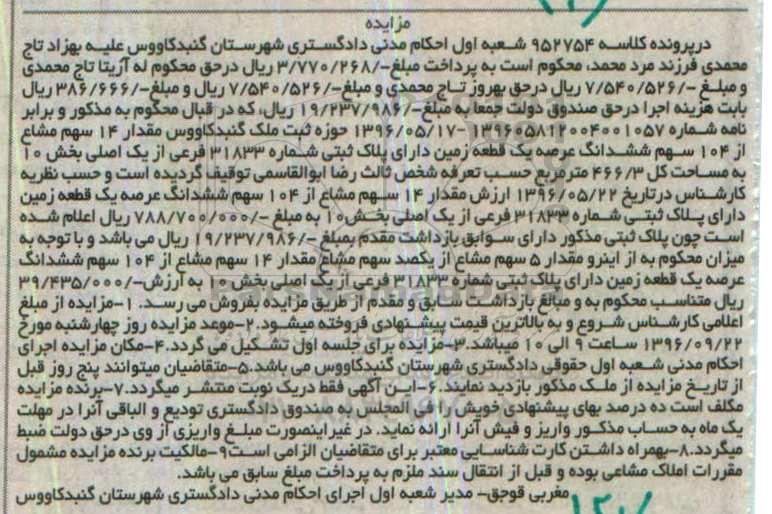 مزایده
درپرونده کلاسه ۹۵۲۷۵۴ شعبه اول احکام مدنی دادگستری شهرستان گنبدکاووس علیه بهزاد تاج
محمدی فرزند مرد محمد، محکوم است به پرداخت مبلغ-/۳/۷۷۰/۲۶۸ ریال درحق محکوم له آزیتا تاج محمدی
و مبلغ -/۷/۵۴۰/۵۲۶ ریال درحق بهروز تاج محمدی و مبلغ-/۷/۵۴۰/۵۲۶ ریال و مبلغ-/۳۸۶/۶۶۶ ریال
بابت هزینه اجرا درحق صندوق دولت جمعا به مبلغ-/۱۹/۲۳۷/۹۸۶ ریال، که در قبال محکوم به مذکور و برابر
نامه شماره ۱۳۹۶۰۵۸۱۲۰۰۴۰۰۱۰۵۷-۱۳۹۶/۰۵/۱۷ حوزه ثبت ملک گنبدکاووس مقدار ۱۴ سهم مشاع
از ۱۰۴ سهم ششدانگ عرصه یک قطعه زمین دارای پلاک ثبتی شماره ۳۱۸۳۳ فرعی از یک اصلی بخش ۱۰
به مساحت کل ۴۶۶/۳ مترمربع حسب تعرفه شخص ثالث رضا ابوالقاسمی توقیف گردیده است و حسب نظریه
کارشناس درتاریخ ۱۳۹۶/۰۵/۲۲ ارزش مقدار ۱۴ سهم مشاع از ۱۰۴ سهم ششدانگ عرصه یک قطعه زمین
دارای پلاک ثبتی شماره ۳۱۸۳۳ فرعی از یک اصلی بخش۱۰ به مبلغ -/۷۸۸/۷۰۰/۰۰۰ ریال اعلام شده
است چون پلاک ثبتی مذکور دارای سوابق بازداشت مقدم بمبلغ -/۱۹/۲۳۷/۹۸۶ ریال می باشد و با توجه به
میزان محکوم به از اینرو مقدار ۵ سهم مشاع از یکصد سهم مشاع مقدار ۱۴ سهم مشاع از ۱۰۴ سهم ششدانگ
عرصه یک قطعه زمین دارای پلاک ثبتی شماره ۳۱۸۳۳ فرعی از یک اصلی بخش ۱۰ به ارزش-/۳۹/۴۳۵/۰۰۰
ریال متناسب محکوم به و مبالغ بازداشت سابق و مقدم از طریق مزایده بفروش می رسد. ۱-مزایده از مبلغ
اعلامی کارشناس شروع و به بالاترین قیمت پیشنهادی فروخته میشود.۲-موعد مزایده روز چهارشنبه مورخ
۱۳۹۶/۰۹/۲۲ ساعت ۹ الی ۱۰ میباشد.۳-مزایده برای جلسه اول تشکیل می گردد.۴-مکان مزایده اجرای
احکام مدنی شعبه اول حقوقی دادگستری شهرستان گنبدکاووس می باشد.۵-متقاضیان میتوانند پنج روز قبل
از تاریخ مزایده از ملک مذکور بازدید نمایند.۶-این آگهی فقط دریک نوبت منتشر میگردد.۷-برنده مزایده
مکلف است ده درصد بهای پیشنهادی خویش را فی المجلس به صندوق دادگستری تودیع و الباقی آنرا در مهلت
یک ماه به حساب مذکور واریز و فیش آنرا ارائه نماید. در غیر اینصورت مبلغ واریزی از وی درحق دولت ضبط
میگردد.۸-بهمراه داشتن کارت شناسایی معتبر برای متقاضیان الزامی است۹-مالکیت برنده مزایده مشمول
مقررات املاک مشاعی بوده و قبل از انتقال سند ملزم به پرداخت مبلغ سابق می باشد.
مغربی قوجق- مدیر شعبه اول اجرای احکام مدنی دادگستری شهرستان گنبدکاووس